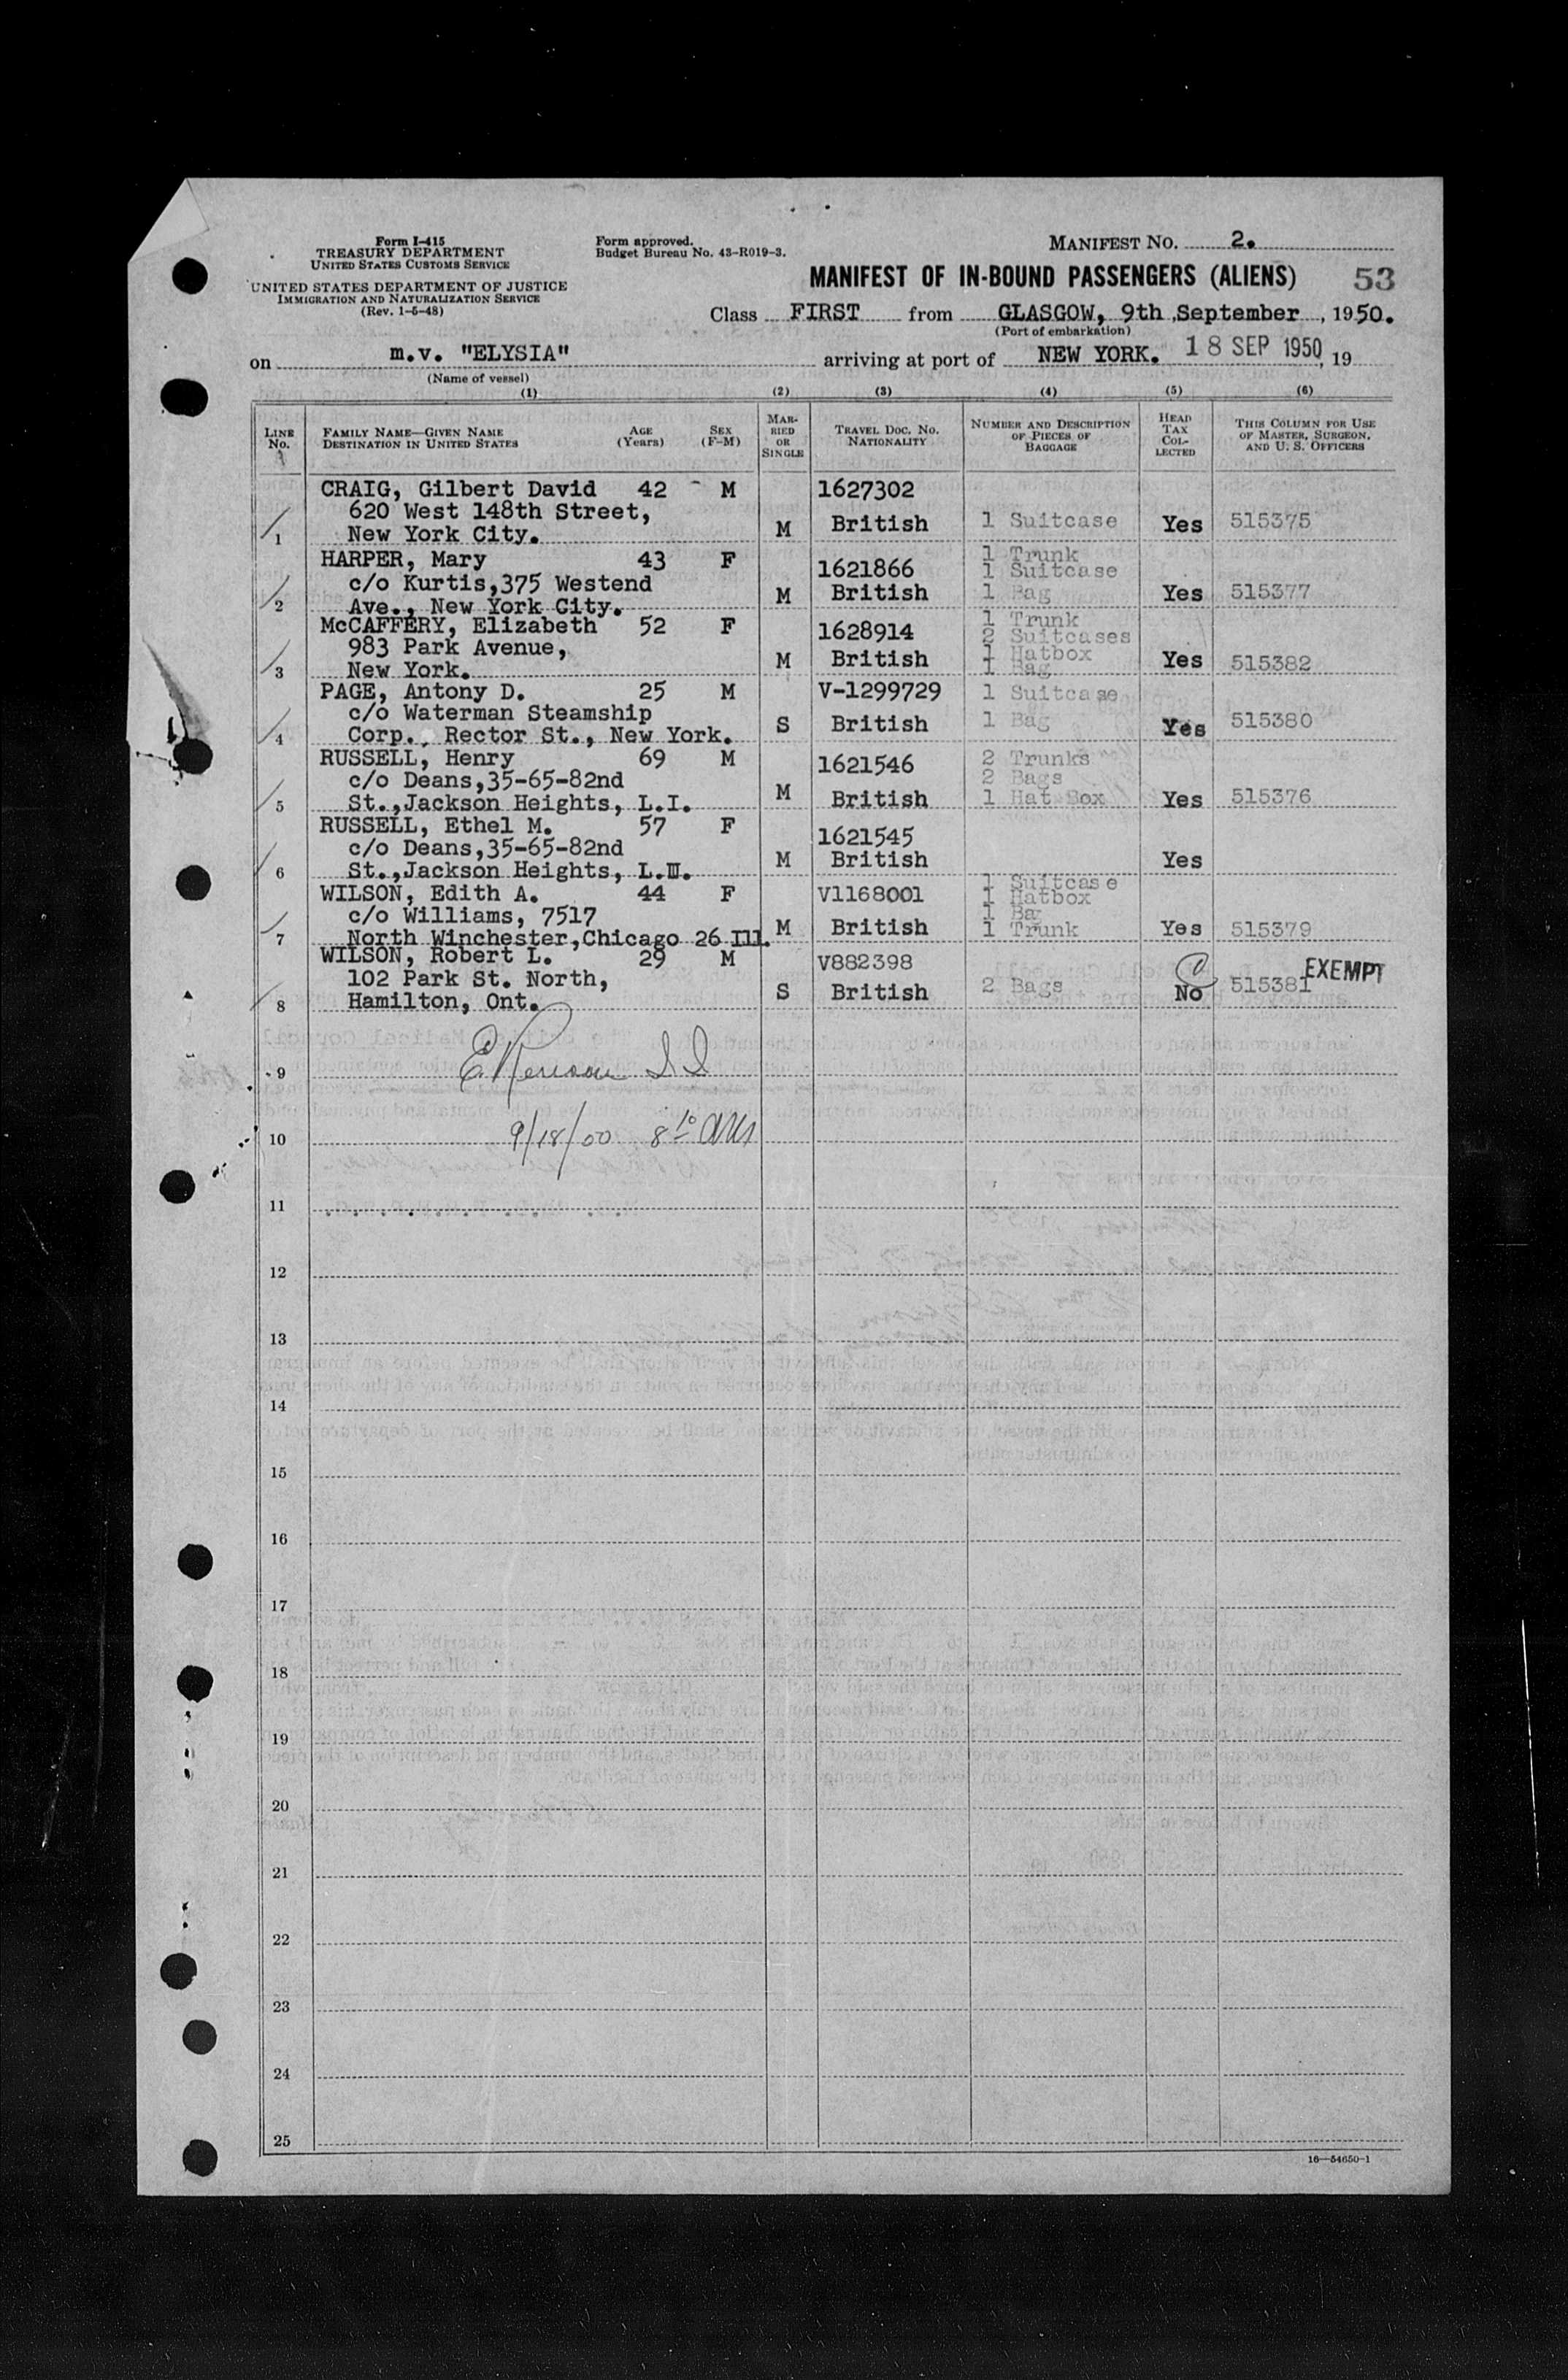 Form I-415
TREASURY DEPARTMENT
UNITED STATES CUSTOMS SERVICE
UNITED STATES DEPARTMENT OF JUSTICE
IMMIGRATION AND NATURALIZATION SERVICE
(Rev. 1-5-48)
Form approved.
Budget Bureau No. 43-R019-3.
MANIFEST NO. 2.
MANIFEST OF IN-BOUND PASSENGERS (ALIENS) 53
Class FIRST from GLASGOW, 9th September, 1950.
(Port of embarkation)
on m.v. "ELYSIA" arriving at port of NEW YORK. 18 SEP 1950, 19
(Name of vessel)
(1) (2) (3) (4) (5) (6)
LINE No. FAMILY NAME—GIVEN NAME DESTINATION IN UNITED STATES AGE (Years) SEX (F-M) MARRIED OR SINGLE TRAVEL DOC. NO. NATIONALITY NUMBER AND DESCRIPTION OF PIECES OF BAGGAGE HEAD TAX COLLECTED THIS COLUMN FOR USE OF MASTER, SURGEON, AND U. S. OFFICERS
CRAIG, Gilbert David 42 M 1627302
620 West 148th Street,
1 New York City. M British 1 Suitcase Yes 515375
HARPER, Mary 43 F 1621866 1 Trunk
c/o Kurtis,375 Westend 1 Suitcase
2 Ave., New York City. M British 1 Bag Yes 515377
McCAFFERY, Elizabeth 52 F 1628914 1 Trunk
983 Park Avenue, 2 Suitcases
1 Hatbox
3 New York. M British 1 Bag Yes 515382
PAGE, Antony D. 25 M V-1299729 1 Suitcase
c/o Waterman Steamship
4 Corp., Rector St., New York. S British 1 Bag Yes 515380
RUSSELL, Henry 69 M 1621546 2 Trunks
c/o Deans,35-65-82nd 2 Bags
5 St.,Jackson Heights, L.I. M British 1 Hat Box Yes 515376
RUSSELL, Ethel M. 57 F 1621545
c/o Deans,35-65-82nd
6 St.,Jackson Heights, L.I. M British Yes
WILSON, Edith A. 44 F V1168001 1 Suitcase
1 Hatbox
c/o Williams, 7517 1 Bag
7 North Winchester,Chicago 26 Ill. M British 1 Trunk Yes 515379
WILSON, Robert L. 29 M V882398
102 Park St. North,
8 Hamilton, Ont. S British 2 Bags No 515381 EXEMPT
9
10 9/18/50 8 10 AM
11
12
13
14
15
16
17
18
19
20
21
22
23
24
25
16—54650-1